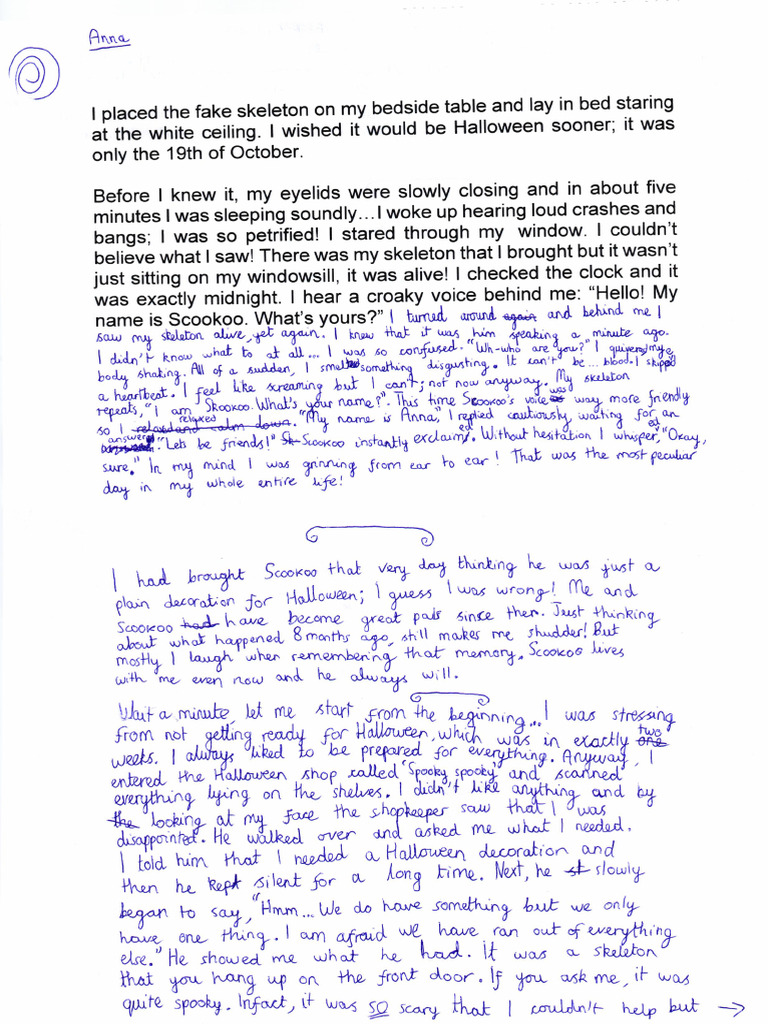 Anna
I placed the fake skeleton on my bedside table and lay in bed staring
at the white ceiling. I wished it would be Halloween sooner; it was
only the 19th of October.
Before I knew it, my eyelids were slowly closing and in about five
minutes I was sleeping soundly…I woke up hearing loud crashes and
bangs; I was so petrified! I stared through my window. I couldn't
believe what I saw! There was my skeleton that I brought but it wasn't
just sitting on my windowsill, it was alive! I checked the clock and it
was exactly midnight. I hear a croaky voice behind me: “Hello! My
name is Scookoo. What's yours?” I turned around again and behind me I
saw my skeleton alive, yet again. I knew that it was him speaking a minute ago.
I didn't know what to at all... I was so confused. "Wh-who are you?" I quivered, my
body shaking. All of a sudden, I smelted something disgusting. It can't be... blood. I skipped
a heartbeat. I feel like screaming but I can't; not now anyway. My skeleton
repeats, "I am Skookoo. What's your name?". This time Scookoo's voice was way more friendly
so I relaxed and calm down. relaxed "My name is Anna", I replied cautiously, waiting for an
answer. "Lets be friends!" Sk Scookoo instantly exclaimed. Without hesitation I whispered, "Okay,
sure." In my mind I was grinning from ear to ear! That was the most peculiar
day in my whole entire life!
I had brought Scookoo that very day thinking he was just a
plain decoration for Halloween; I guess I was wrong! Me and
Scookoo had have become great pals sinse then. Just thinking
about what happened 8 months ago, still makes me shudder! But
mostly I laugh when remembering that memory. Scookoo lives
with me even now and he always will.
Wait a minute, let me start from the beginning... I was stressing
from not getting ready for Halloween, which was in exactly one two
weeks. I always liked to be prepared for everything. Anyway, I
entered the Halloween shop called 'Spooky spooky' and scanned
everything lying on the shelves. I didn't like anything and by
the looking at my face the shopkeeper saw that I was
disappointed. He walked over and asked me what I needed.
I told him that I needed a Halloween decoration and
then he kept silent for a long time. Next, he st slowly
began to say, "Hmm... We do have something but we only
have one thing. I am afraid we have ran out of everything
else." He showed me what he had. It was a skeleton
that you hang up on the front door. If you ask me, it was
quite spooky. Infact, it was SO scary that I couldn't help but →